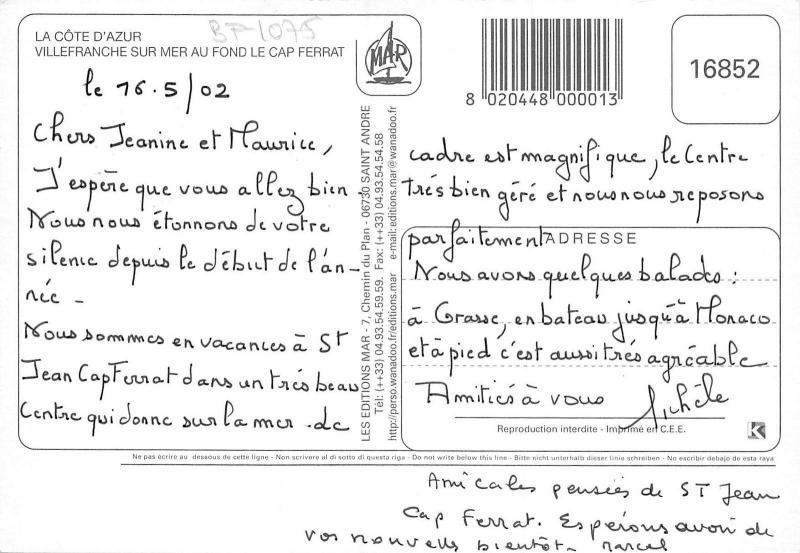 BF-1075
LA CÔTE D'AZUR
VILLEFRANCHE SUR MER AU FOND LE CAP FERRAT
MAR
8 020448 000013
16852
le 16.5/02
Chers Jeanine et Maurice,
J'espère que vous allez bien
Nous nous étonnons de votre
silence depuis le début de l'an-
née -
Nous sommes en vacances à St
Jean Cap Ferrat dans un très beau
Centre qui donne sur la mer. le
LES EDITIONS MAR - 7, Chemin du Plan - 06730 SAINT ANDRE
Tél: (++33) 04.93.54.59.59. Fax: (++33) 04.93.54.54.58
http://perso.wanadoo.fr/editions.mar e-mail:editions.mar@wanadoo.fr
cadre est magnifique, le Centre
très bien géré et nous nous reposons
parfaitement
ADRESSE
Nous avons quelques balades :
à Grasse, en bateau jusqu'à Monaco
et à pied c'est aussi très agréable
Amitiés à vous Michèle
Reproduction interdite - Imprimé en C.E.E.
K
Ne pas écrire au dessous de cette ligne - Non scrivere al di sotto di questa riga - Do not write below this line - Bitte nicht unterhalb dieser linie schreiben - No escribir debajo de esta raya
Amicales pensées de ST Jean
Cap Ferrat. Espérons avoir de
vos nouvelles bientôt - Marcel